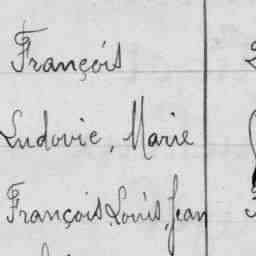 François
Ludovic, Marie
François, Louis, Jean